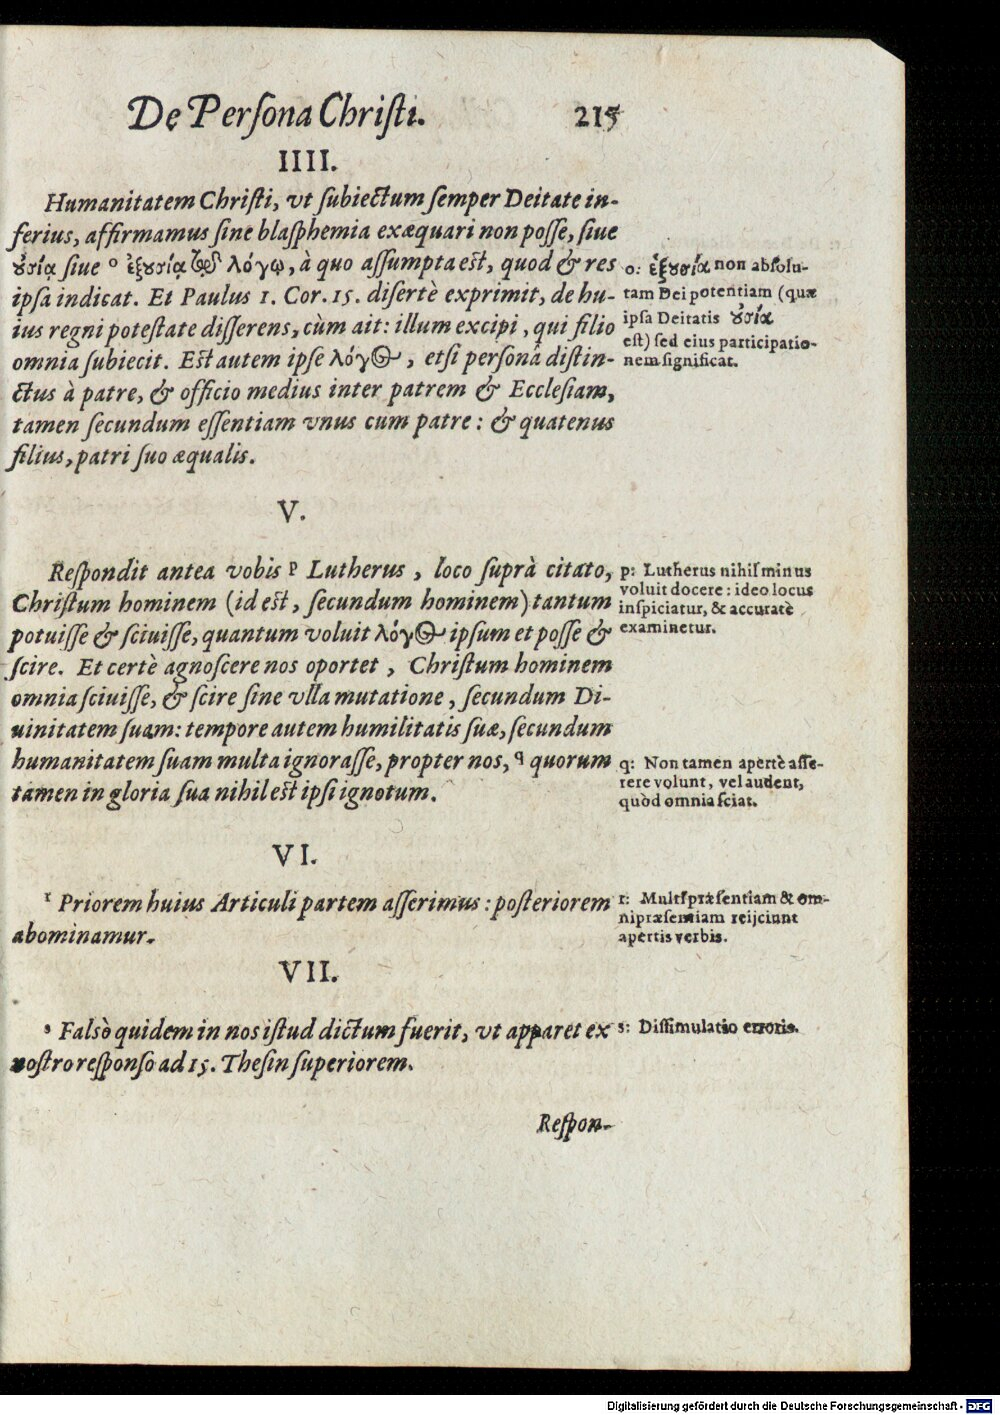 De Persona Christi. 215
IIII.
Humanitatem Christi, vt subiectum semper Deitate in-
ferius, affirmamus sine blasphemia exæquari non posse, siue
ȣσίᾳ siue o ἐξȣσίᾳ τῷ λόγῳ, à quo assumpta est, quod & res
ipsa indicat. Et Paulus 1. Cor. 15. disertè exprimit, de hu-
ius regni potestate disserens, cùm ait: illum excipi, qui filio
omnia subiecit. Est autem ipse λόγος, etsi personâ distin-
ctus à patre, & officio medius inter patrem & Ecclesiam,
tamen secundum essentiam vnus cum patre: & quatenus
filius, patri suo æqualis.
o: ἐξȣσία non absolu-
tam Dei potentiam (quæ
ipsa Deitatis ȣσία
est) sed eius participatio-
nem significat.
V.
Respondit antea vobis p Lutherus, loco suprà citato,
Christum hominem (id est, secundum hominem) tantum
potuisse & sciuisse, quantum voluit λόγος ipsum et posse &
scire. Et certè agnoscere nos oportet, Christum hominem
omnia sciuisse, & scire sine vlla mutatione, secundum Di-
uinitatem suam: tempore autem humilitatis suæ, secundum
humanitatem suam multa ignorasse, propter nos, q quorum
tamen in gloria sua nihil est ipsi ignotum.
p: Lutherus nihil minus
voluit docere: ideo locus
inspiciatur, & accuratè
examinetur.
q: Non tamen apertè asse-
rere volunt, vel audent,
quòd omnia sciat.
VI.
r Priorem huius Articuli partem asserimus: posteriorem
abominamur.
r: Multipræsentiam & om-
nipræsentiam reijciunt
apertis verbis.
VII.
s Falsò quidem in nos istud dictum fuerit, vt apparet ex
nostro responso ad 15. Thesin superiorem.
s: Dissimulatio erroris.
Respon-
Digitalisierung gefördert durch die Deutsche Forschungsgemeinschaft - DFG